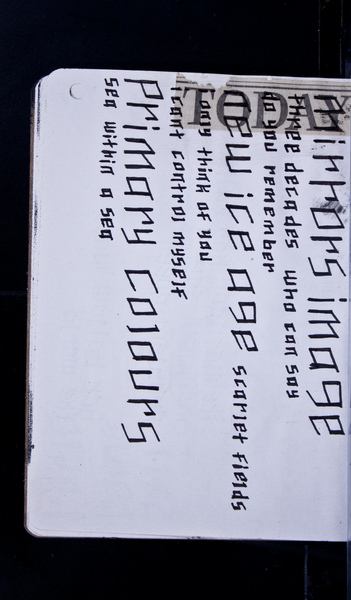 TODAY
Mirrors image
three decades who can say
do you remember
new ice age scarlet fields
only think of you
i cant control myself
primary colours
sea within a sea